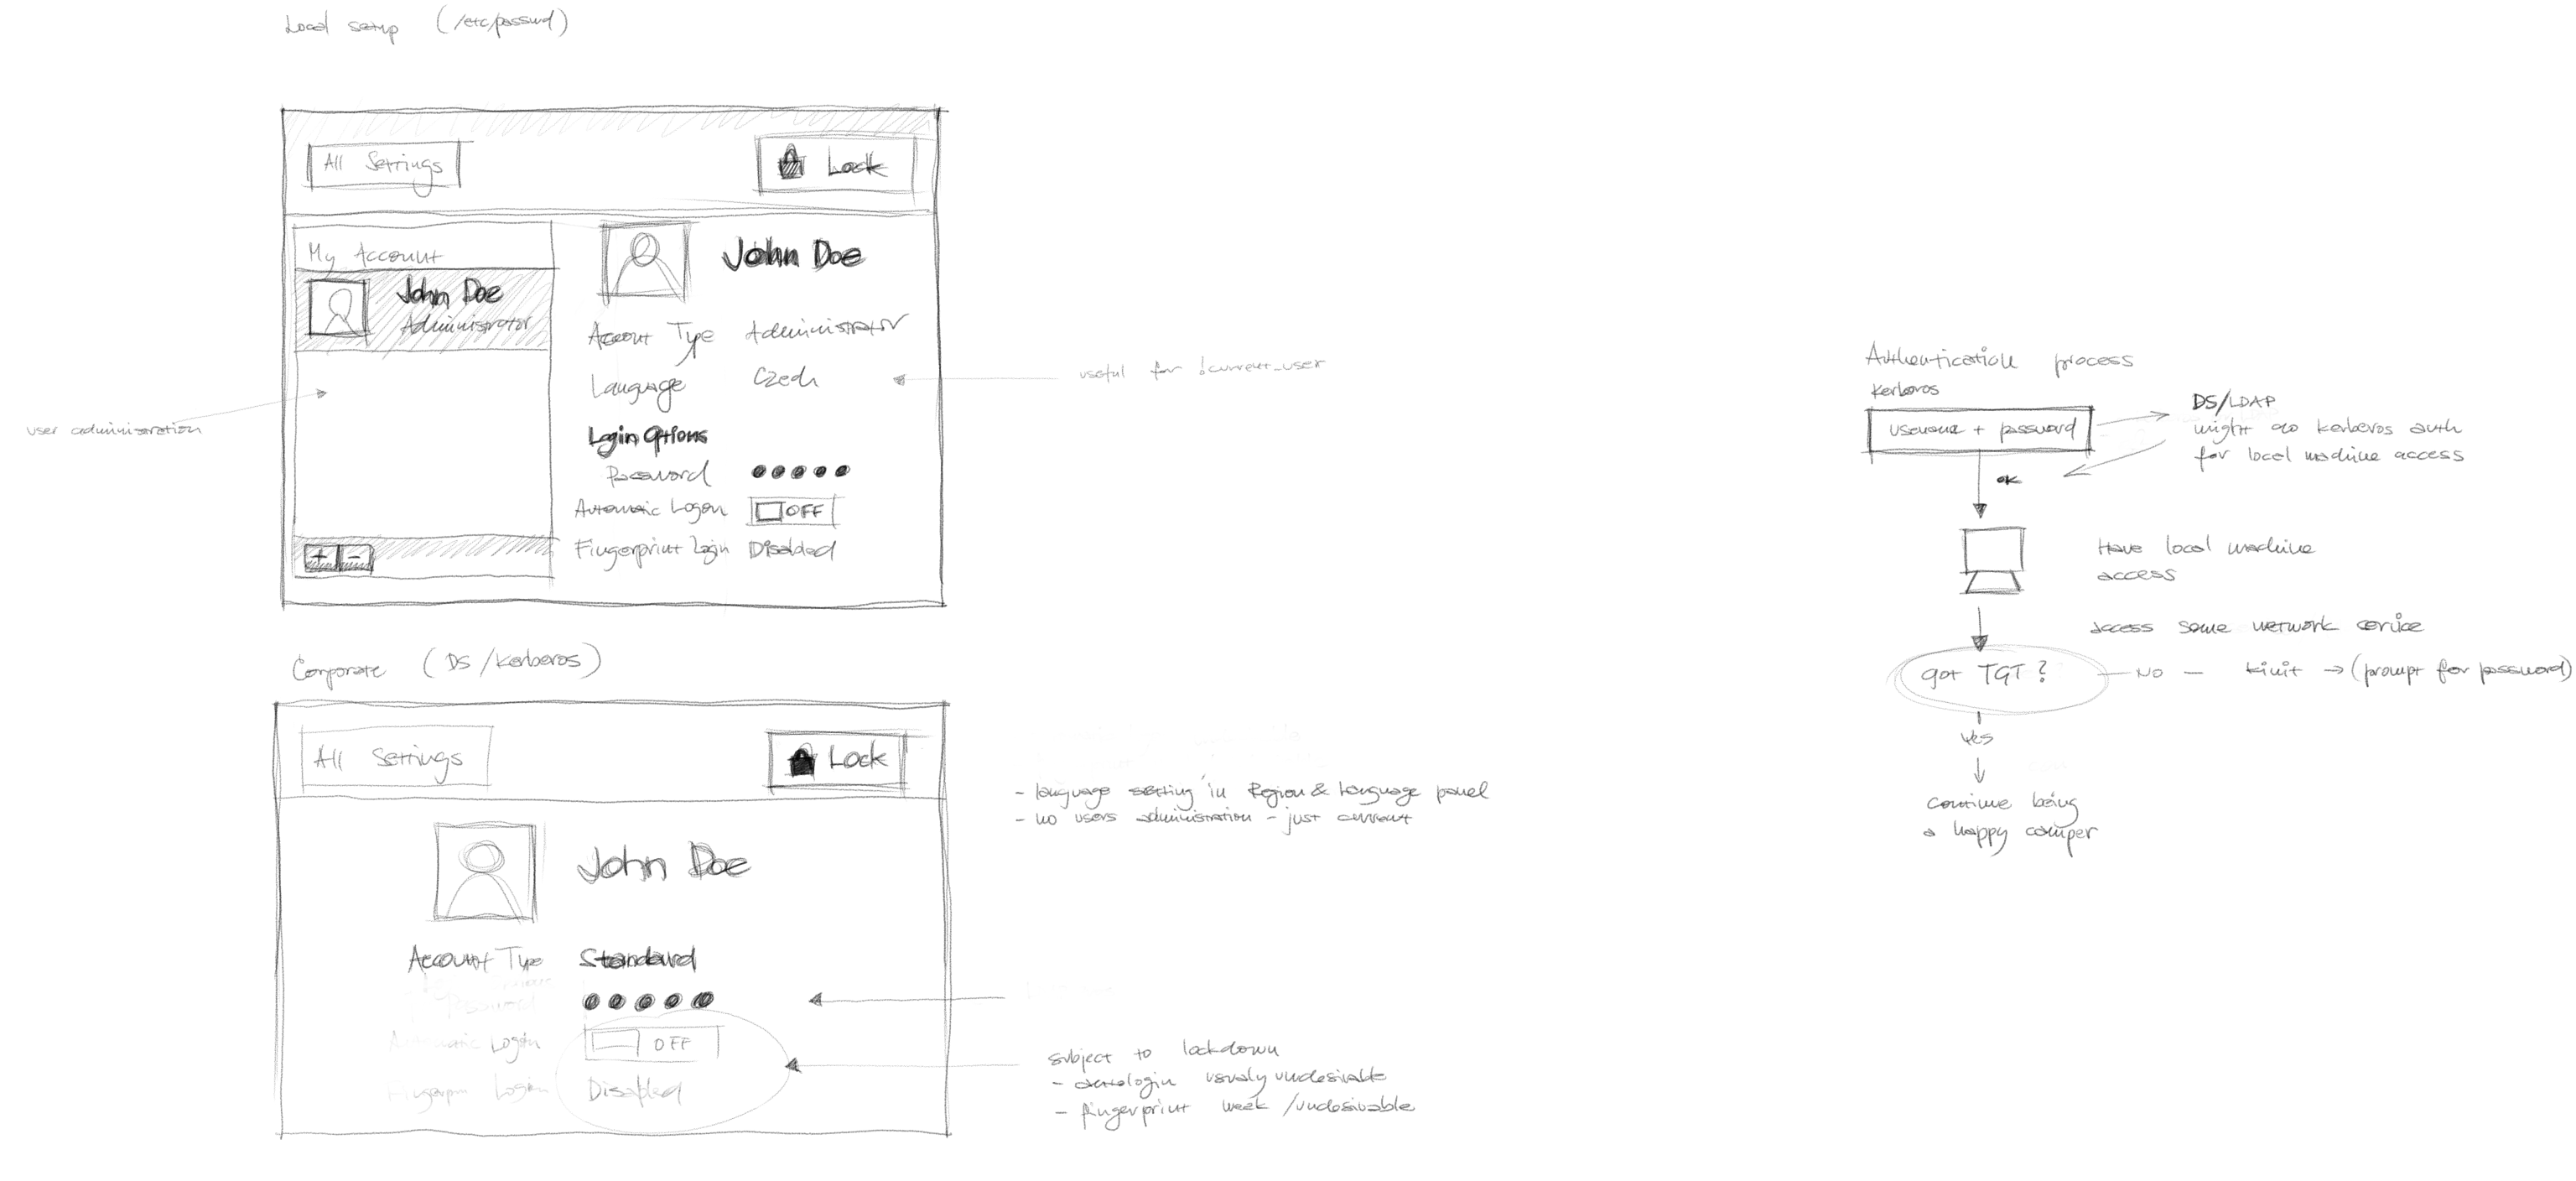 Local setup (/etc/passwd)
All Settings
Lock
My Account
John Doe
Administrator
+ -
John Doe
Account Type Administrator
Language Czech
Login Options
Password
Automatic Logon OFF
Fingerprint Login Disabled
user administration
useful for !current_user
Corporate (DS/Kerberos)
All Settings
Lock
John Doe
Account Type Standard
Password
Automatic Login OFF
Login Disabled
- language setting in Region & Language panel
- no users administration - just current
subject to lockdown
- autologin usualy undesirable
- fingerprint weak/undesirable
Authentication process
Kerberos
username + password
DS/LDAP
might do kerberos auth
for local machine access
OK
Have local machine
access
access some network service
got TGT?
NO - kinit → (prompt for password)
Yes
continue being
a happy camper